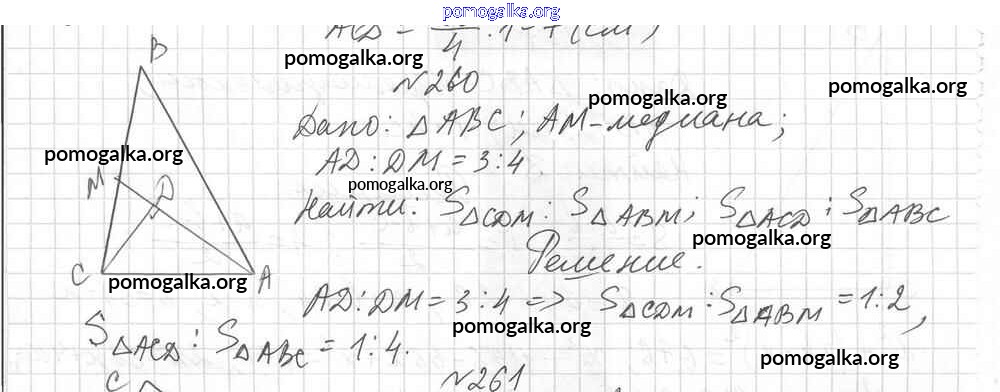 pomogalka.org
ACD = 4 · 1 = 7 (см)
pomogalka.org
№260
pomogalka.org
pomogalka.org
B
Дано: △ABC; AM - медиана;
pomogalka.org
AD : DM = 3 : 4
M D
pomogalka.org
Найти: S△CDM : S△ABM; S△ACD : S△ABC
pomogalka.org
Решение.
C A
pomogalka.org
AD : DM = 3 : 4 => S△CDM : S△ABM = 1 : 2,
pomogalka.org
S△ACD : S△ABC = 1 : 4.
pomogalka.org
C
№261